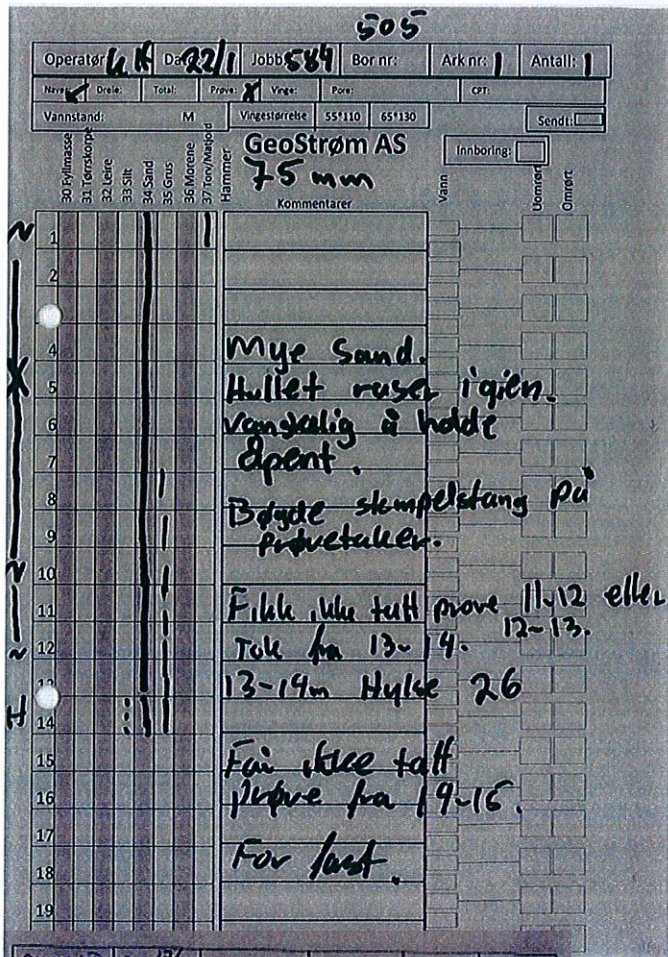 505
Operatør Dato 22/1 Jobb 584 Bor nr: Ark nr: 1 Antall: 1
Naver: Dreie: Total: Prøve: X Vinge: Pore: CPT:
Vannstand: M Vingestørrelse 55*110 65*130 Sendt:
GeoStrøm AS Innboring:
75 mm
30 Fyllmasse 31 Tørrskorpe 32 Leire 33 Silt 34 Sand 35 Grus 36 Morene 37 Torv/Matjord Hammer Kommentarer Vann Uomrørt Omrørt
~ 1
2
4 Mye Sand.
X 5 Hullet raser igien.
6 Vanskelig å holde
7 åpent.
8 Bøgde stempelstang på
9 prøvetaker.
~ 10
11 Fikk ikke tatt prøve 11-12 eller
12-13.
~ 12 Tok fra 13-14.
13 13-14m Hylse 26
H 14
15 Får ikke tatt
16 prøve fra 14-15.
17
18 For fast.
19